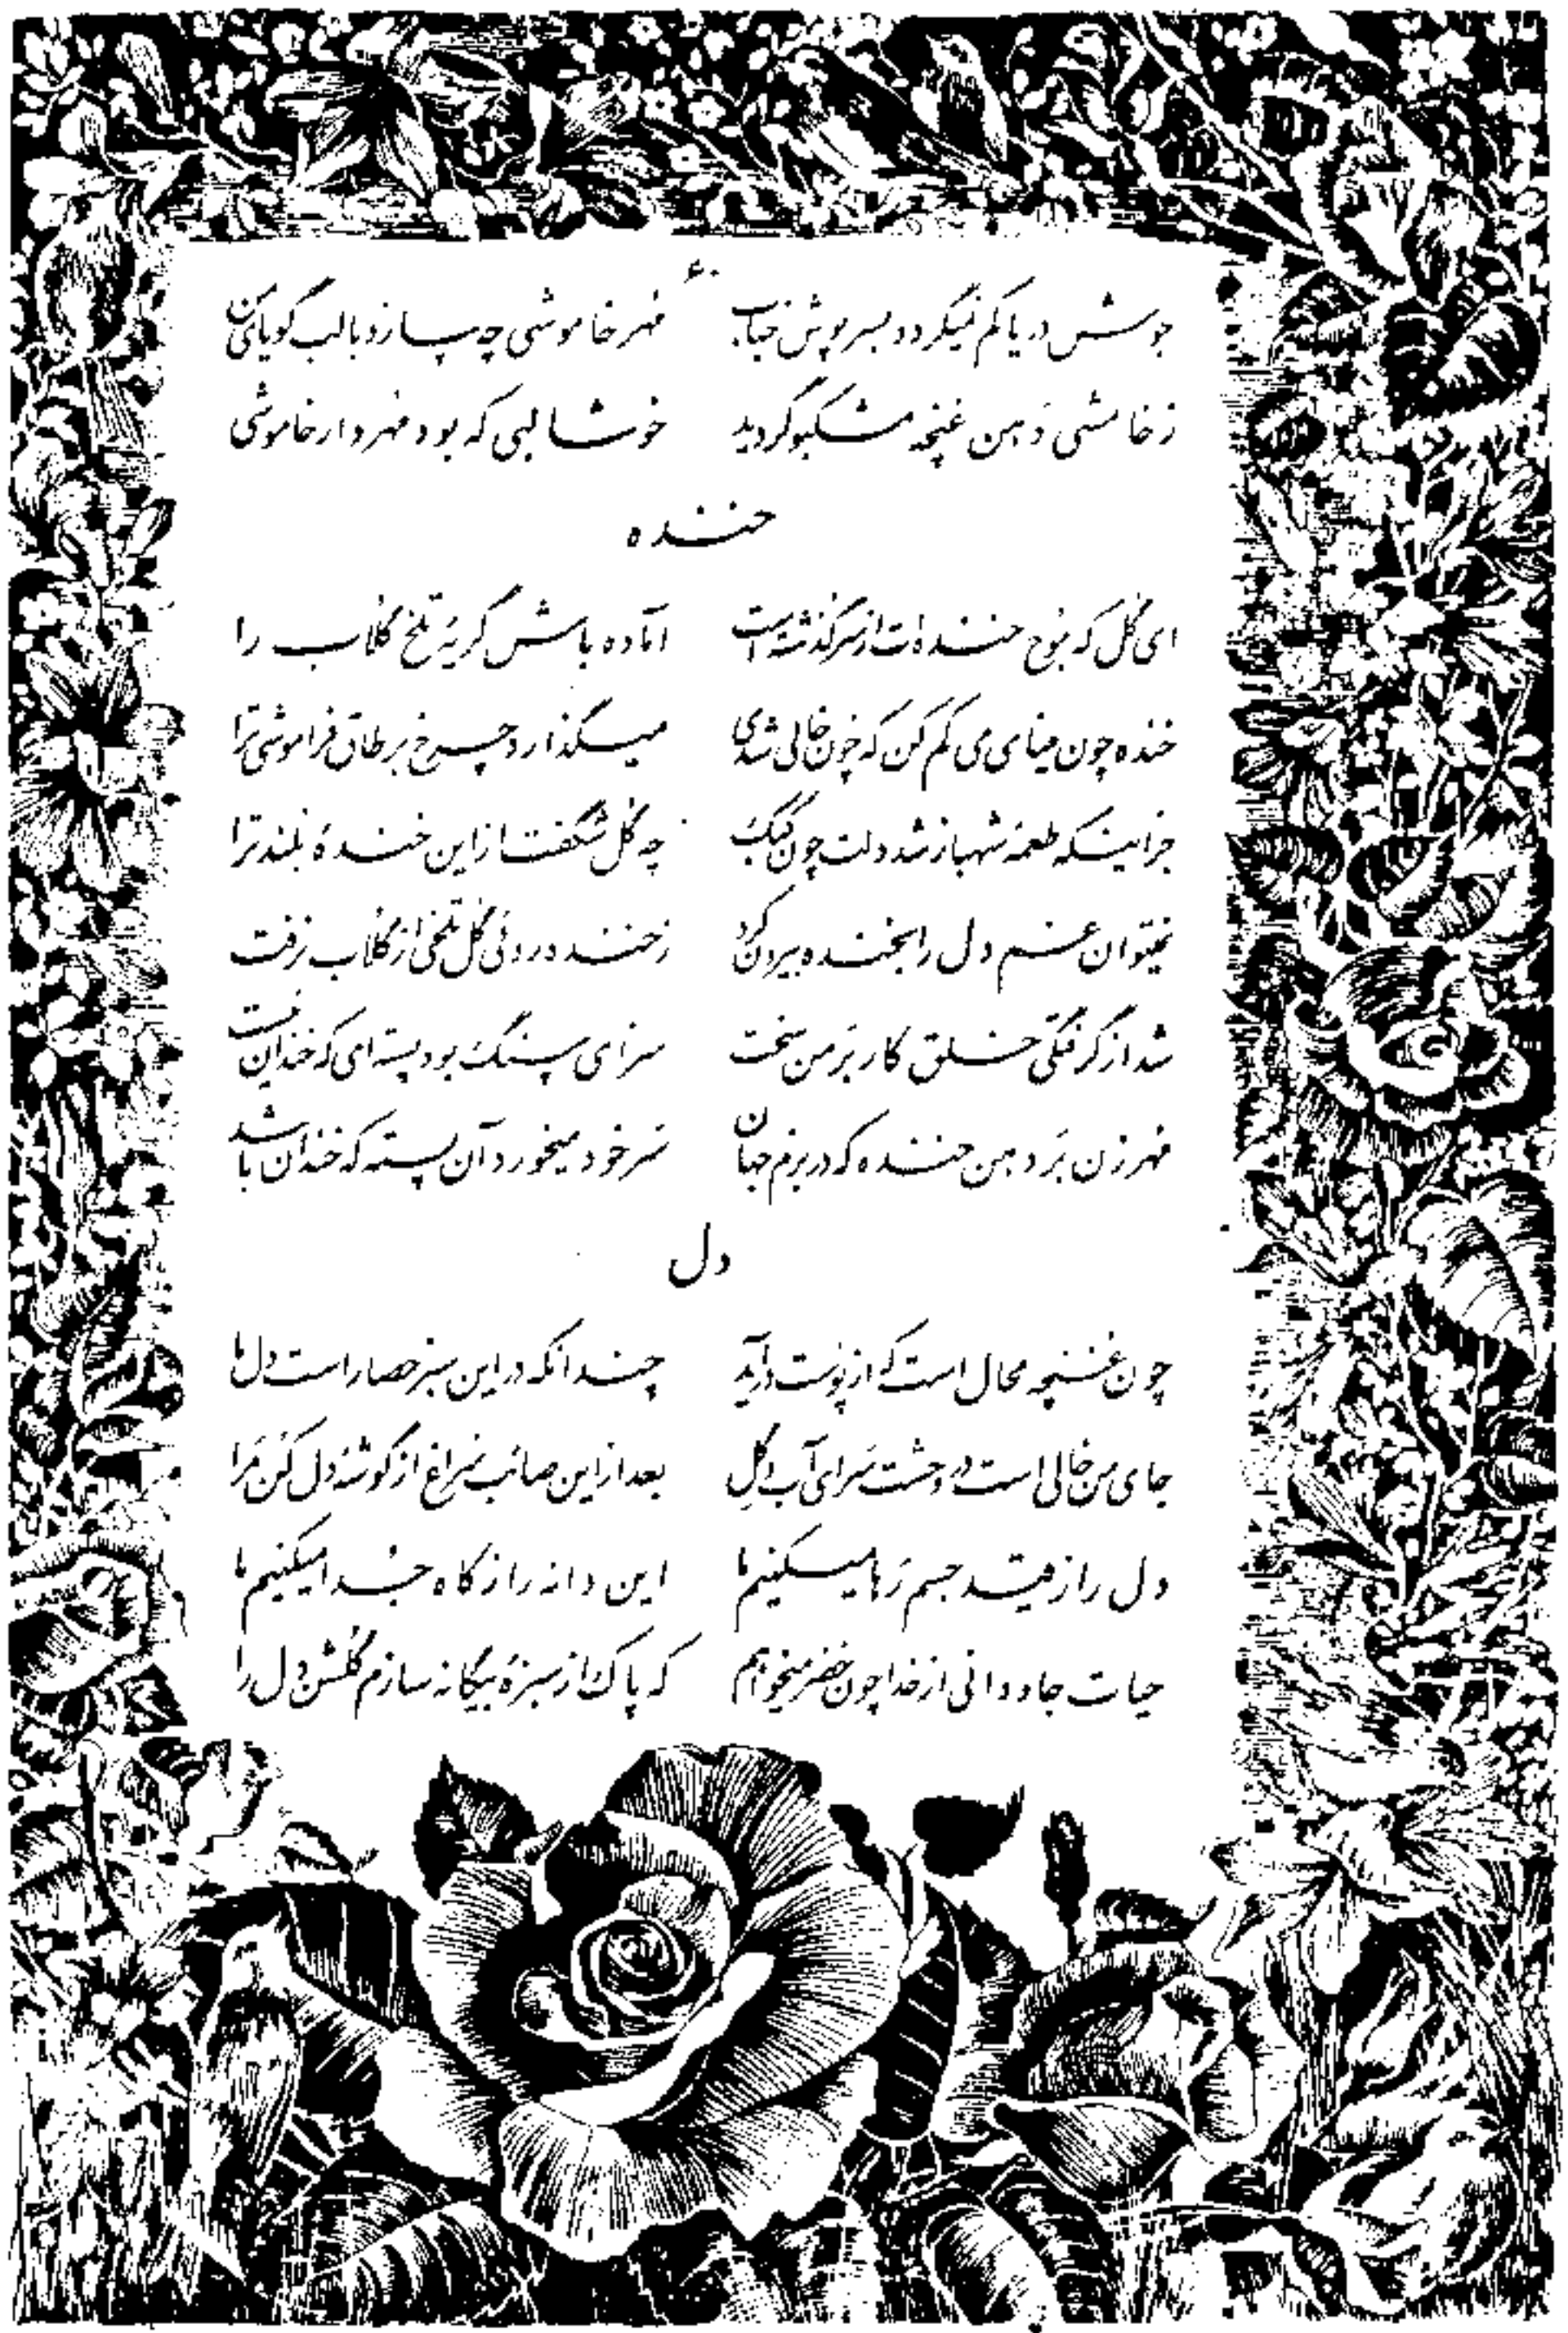 ۶۰
جوشش دریا کم نمیگردد بسرپوش حباب مُهر خاموشی چه سازد با لب گویای من
ز خامشی دَهن غنچه مشکبو گردید خوشا لبی که بود مُهردار خاموشی
خنده
ای گُل که موج خنده‌ات از سر گذشته است آماده باش گریهٔ تلخ گلاب را
خنده چون مینای می کم کن که چون خالی شدی میگذارد چرخ بر طاق فراموشی ترا
جز اینکه طعمهٔ شهباز شد دلت چون کبک چه گُل شگفت از این خندهٔ بلند ترا
نمیتوان غم دل را بخنده بیرون کرد ز خنده روئی گُل تلخی از گلاب نرفت
شد از گرفتگی خلق کار بَر من سخت سزای سنگ بود پسته‌ای که خندان نیست
مُهر زن بَر دهن خنده که در بزم جهان سَر خود میخورد آن پسته که خندان باشد
دل
چون غنچه محال است که از پوست برآید چندانکه در این سبز حصار است دل ما
جای من خالی است در وحشت سَرای آب و گِل بعد از این صائب سُراغ از گوشهٔ دل کُن مَرا
دل را ز قید جسم رَها میکنیم ما این دانه را ز کاه جُدا میکنیم ما
حیات جاودانی از خدا چون خضر میخواهم که پاک از سبزهٔ بیگانه سازم گلشن دل را